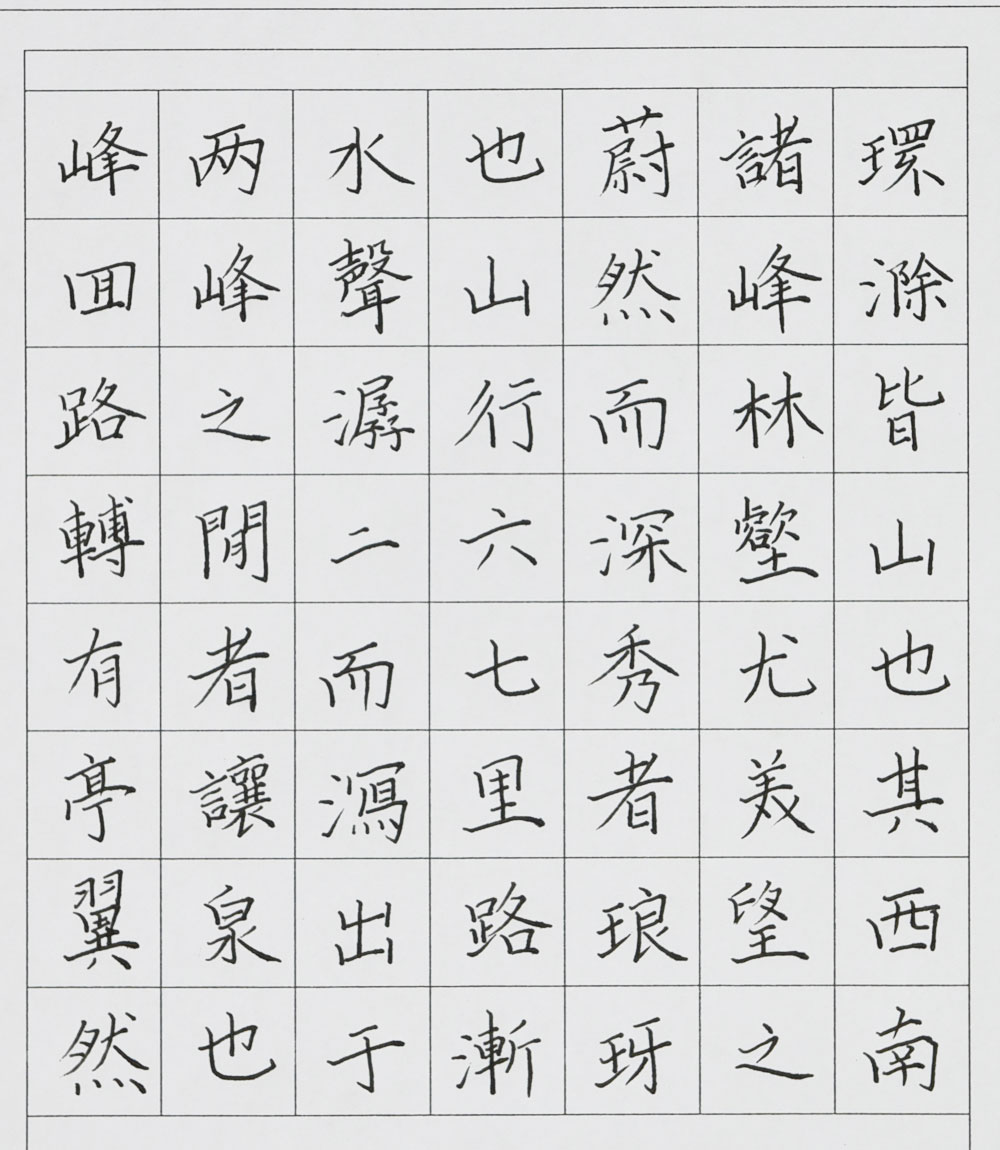 環滁皆山也其西南
諸峰林壑尤美望之
蔚然而深秀者琅玡
也山行六七里路漸
水聲潺二而瀉出于
两峰之間者讓泉也
峰回路轉有亭翼然